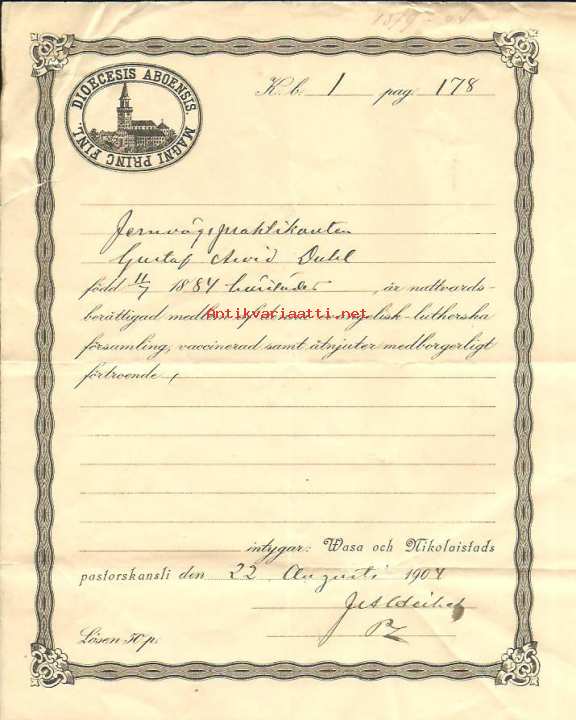 1899-04
DIOECESIS ABOENSIS. MAGNI PRINC FINL.
K.b. 1 pag 178
Jernvägspraktikanten
Gustaf Arvid Dahl
född 11/7 1884 härstädes, är nattvards-
berättigad medlem af evangelisk-lutherska
Antikvariaatti.net
församling, vaccinerad samt åtnjuter medborgerligt
förtroende,
intygar: Wasa och Nikolaistads
pastorskansli den 22 Augusti 1904
Lösen 50 p: